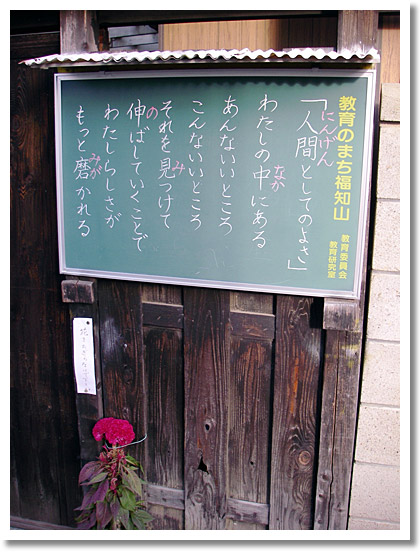 教育のまち福知山
教育委員会
教育研究室
「人間としてのよさ」
にんげん
わたしの中にある
なか
あんないいところ
こんないいところ
それを見つけて
み
伸ばしていくことで
の
わたしらしさが
もっと磨かれる
みが